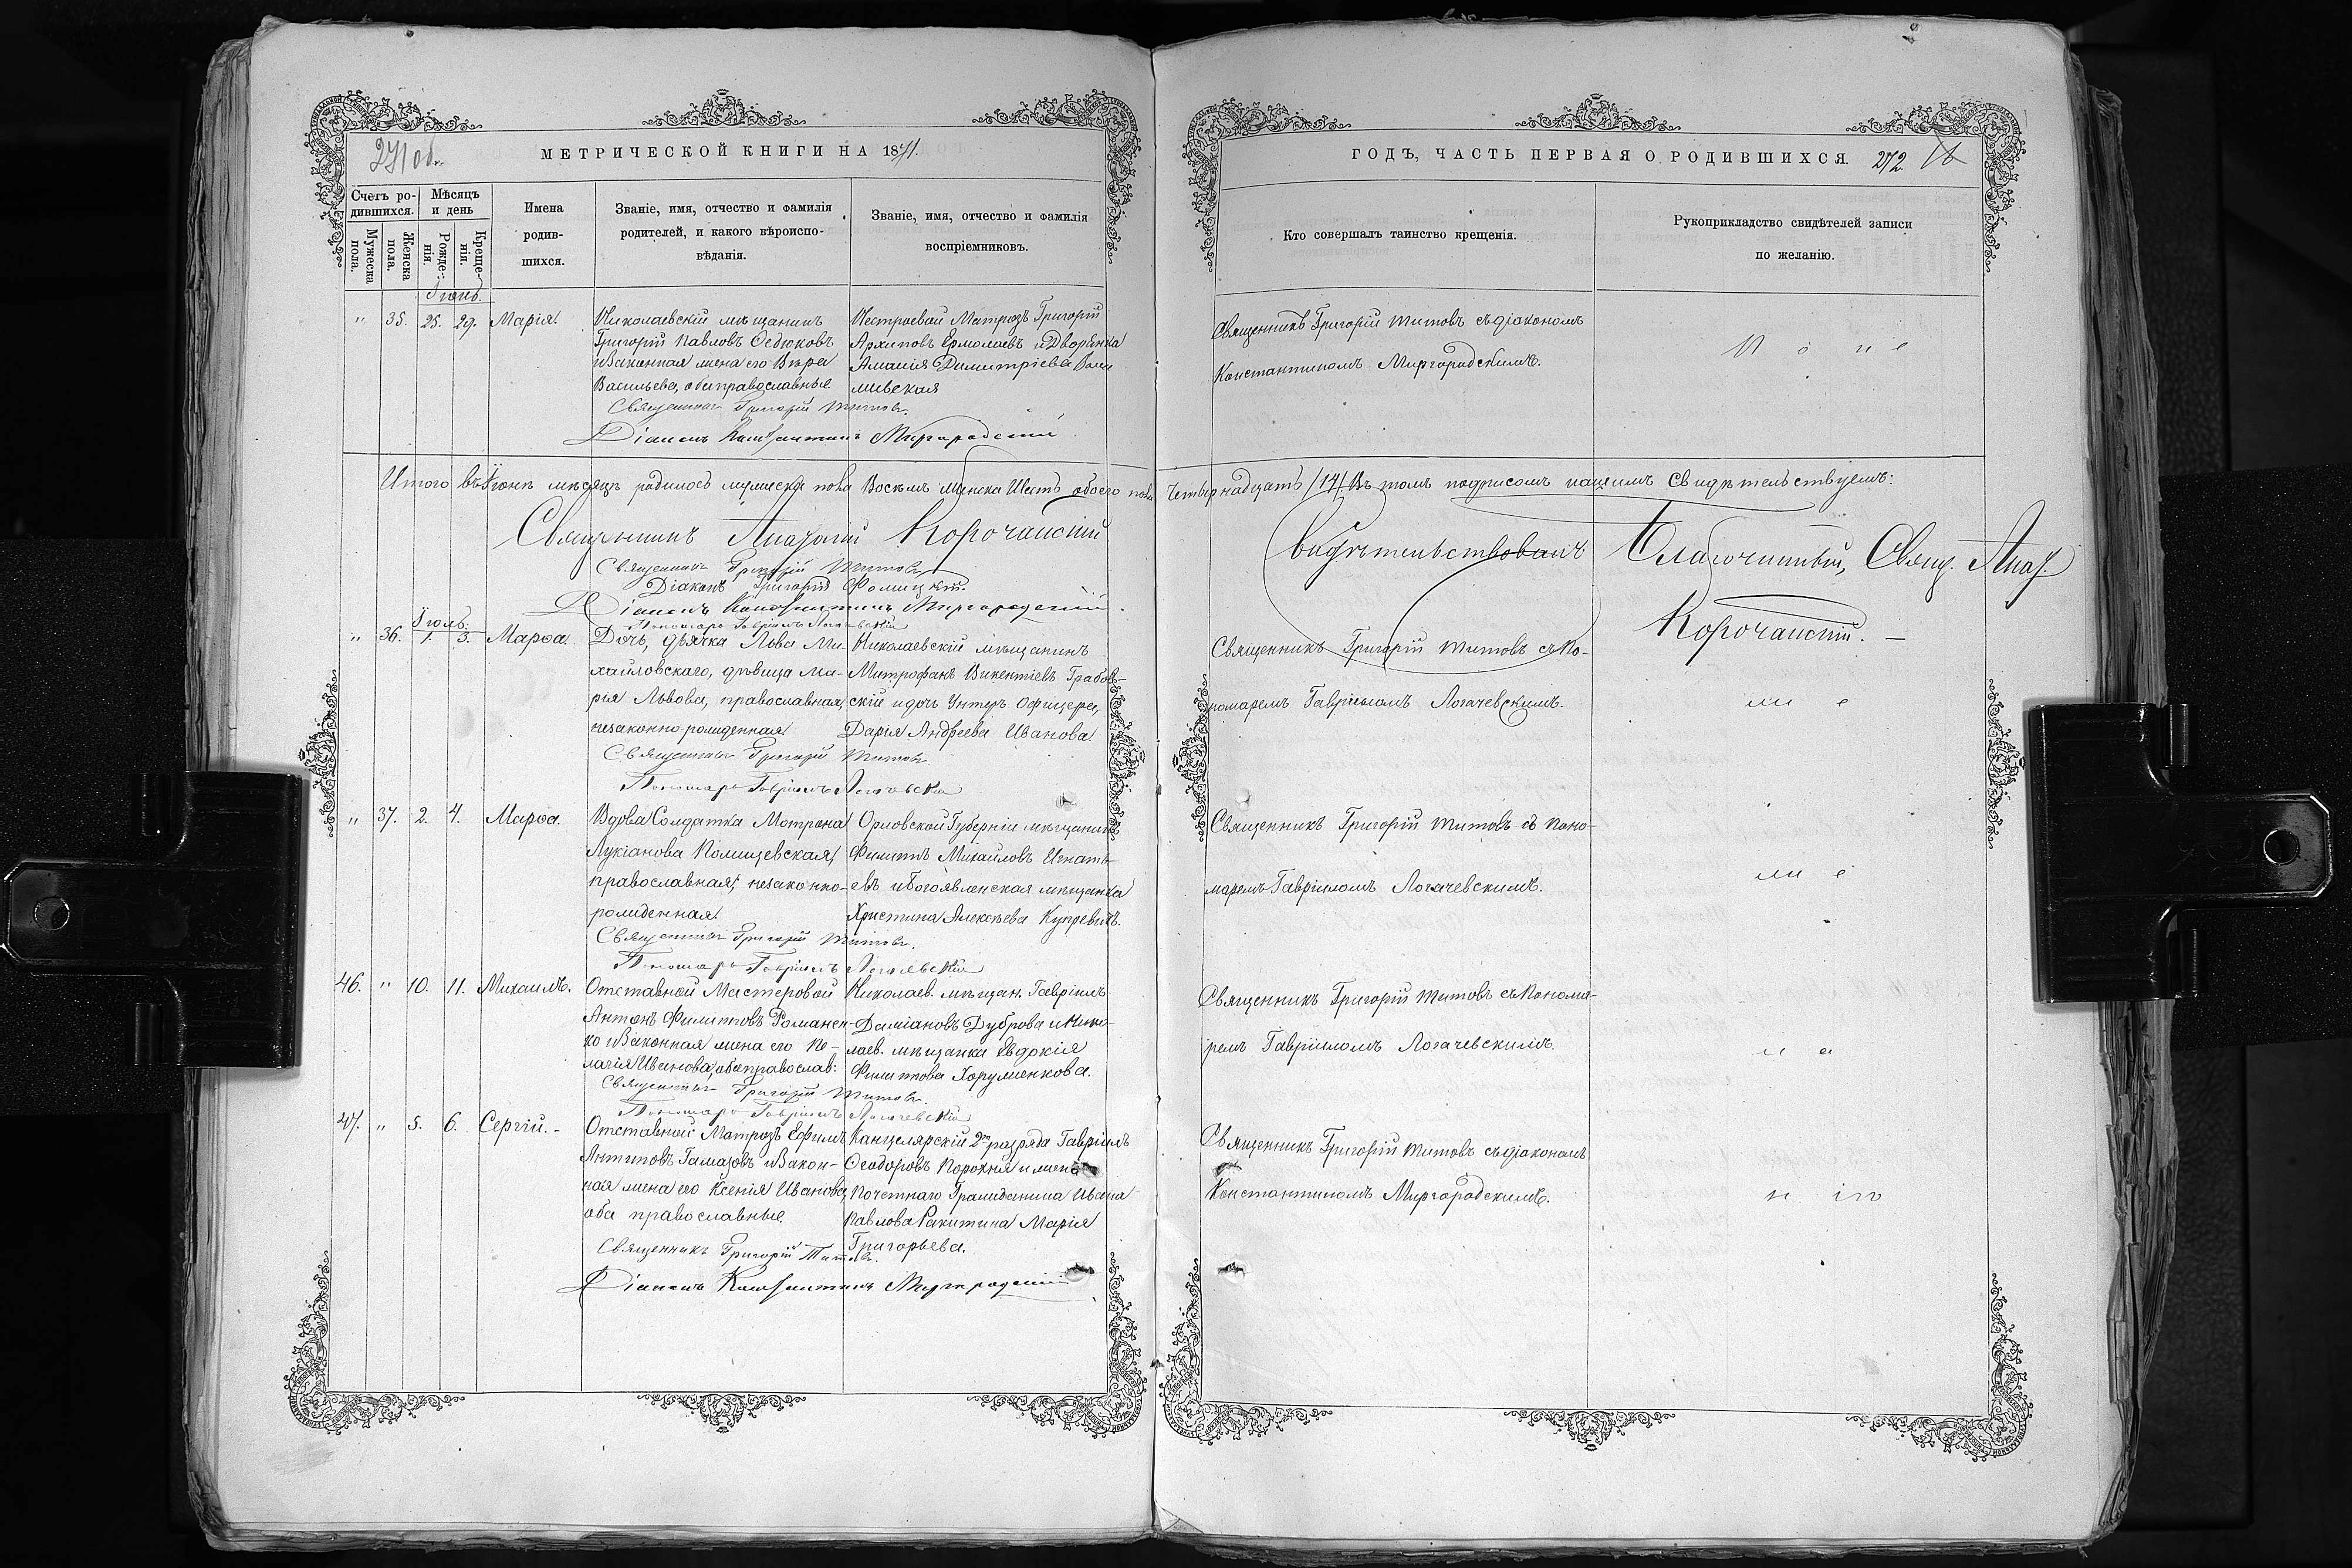 271 об.
МЕТРИЧЕСКОЙ КНИГИ НА 1871.
Счетъ родившихся.
Мѣсяцъ и день
Имена родившихся.
Званіе, имя, отчество и фамилія родителей, и какого вѣроисповѣданія.
Званіе, имя, отчество и фамилія воспріемниковъ.
Мужеска пола.
Женска пола.
Рожденія.
Крещенія.
Іюнь.
" 35. 25. 29. Марія.
Николаевскій мѣщанинъ
Григорій Павловъ Седюковъ
и Законная жена его Вѣра
Васильева, оба православные
Нестроевой Матрозъ Григорій
Архиповъ Ермолаевъ и Дворянка
Димитріева
Священникъ Григорій Титовъ.
Діаконъ Константинъ Миргородскій
Итого въ Іюнѣ мѣсяцѣ родилось мужеска пола Восемь женска Шесть обоего пола
Священникъ Анатолій Корочанскій
Священникъ Григорій Титовъ
Діаконъ Григорій
Діаконъ Константинъ Миргородскій.
Пономарь Гавріилъ Логачевскій
Іюль.
" 36. 1. 3. Марѳа.
Дочь, дьячка Льва Ми-
хайловскаго, дѣвица Ма-
рія Львова, православная,
незаконно-рожденная
Николаевскій мѣщанинъ
Митрофанъ Викентіевъ Грабов-
скій и дочь Унтеръ Офицера,
Дарія Андреева Иванова.
Священникъ Григорій Титовъ.
Пономарь Гавріилъ Логачевскій
" 37. 2. 4. Марѳа.
Вдова Солдатка Мотрона
Лукіанова
православная, незаконно-
рожденная
Орловской Губерніи мѣщанинъ
Филиппъ Михайловъ Игнать-
евъ и Богоявленская мѣщанка
Христина Алексѣева
Священникъ Григорій Титовъ.
Пономарь Гавріилъ Логачевскій
46. " 10. 11. Михаилъ.
Отставной Мастеровой
Антонъ Филипповъ Романен-
ко и Законная жена его Пе-
лагія Иванова, оба православ:
Николаев. мѣщан. Гавріилъ
Даміановъ Дуброва и Нико-
лаев. мѣщанка Евдокія
Филиппова Хоруженкова.
Священникъ Григорій Титовъ.
Пономарь Гавріилъ Логачевскій
47. " 5. 6. Сергій.-
Отставной Матрозъ Ефимъ
Антиповъ Гамазовъ и Закон-
ная жена его Ксенія Иванова,
оба православные
Канцелярскій 2го разряда Гавріилъ
Ѳеодоровъ Порохня и жена
Почетнаго Гражданина Ивана
Павлова Ракитина Марія
Григорьева.
Священникъ Григорій Титовъ.
Діаконъ Константинъ Миргородскій
ГОДЪ, ЧАСТЬ ПЕРВАЯ О РОДИВШИХСЯ.
272
Кто совершалъ таинство крещенія.
Рукоприкладство свидѣтелей записи по желанію.
Священникъ Григорій Титовъ съ діакономъ
Константиномъ Миргородскимъ.
Четырнадцать /14/. Въ томъ подписомъ нашимъ свидѣтельствуемъ:
Свидѣтельствовалъ Благочинный, Свящ. Анат.
Корочанскій. —
Священникъ Григорій Титовъ съ По-
номаремъ Гавріиломъ Логачевскимъ.
Священникъ Григорій Титовъ съ Поно-
маремъ Гавріиломъ Логачевскимъ.
Священникъ Григорій Титовъ съ Понома-
ремъ Гавріиломъ Логачевскимъ.
Священникъ Григорій Титовъ съ діакономъ
Константиномъ Миргородскимъ.